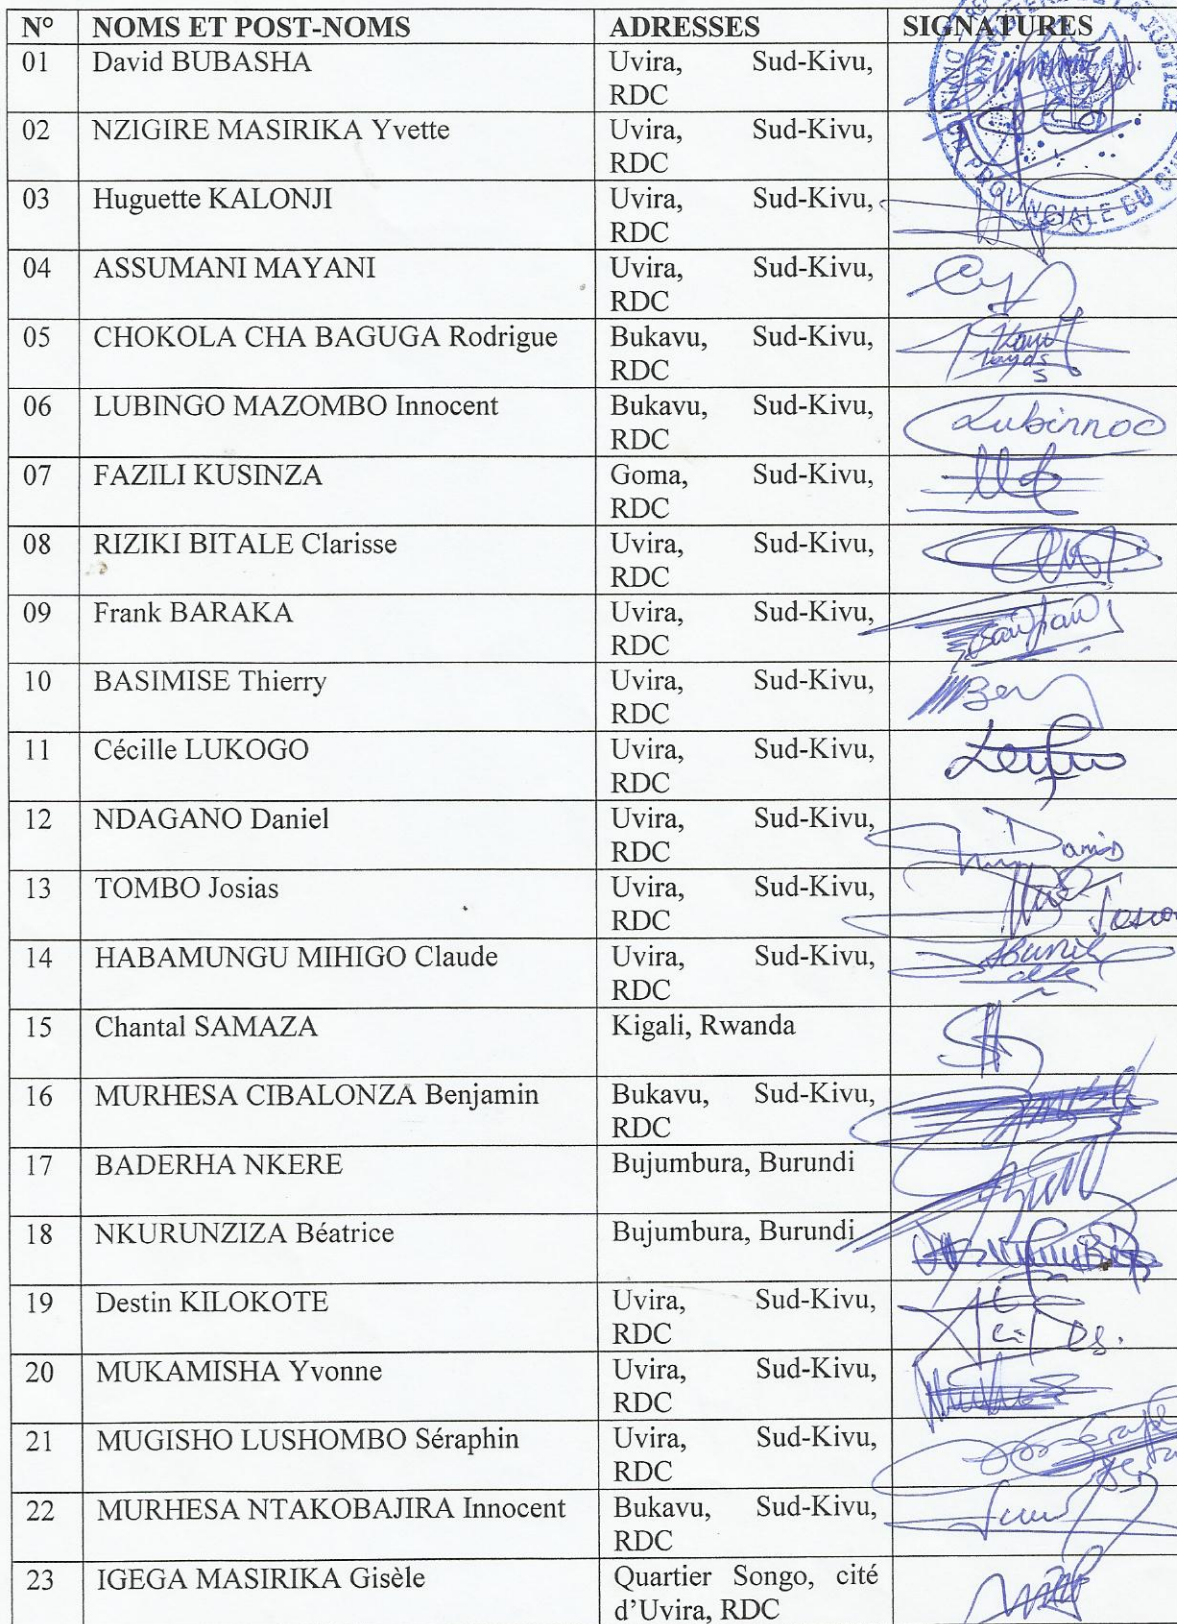 N° NOMS ET POST-NOMS ADRESSES SIGNATURES
MINISTERE DE LA JUSTICE
PROVINCIALE DU
01 David BUBASHA Uvira, Sud-Kivu,
RDC
02 NZIGIRE MASIRIKA Yvette Uvira, Sud-Kivu,
RDC
03 Huguette KALONJI Uvira, Sud-Kivu,
RDC
04 ASSUMANI MAYANI Uvira, Sud-Kivu,
RDC
05 CHOKOLA CHA BAGUGA Rodrigue Bukavu, Sud-Kivu,
RDC
06 LUBINGO MAZOMBO Innocent Bukavu, Sud-Kivu, Lubinnoc
RDC
07 FAZILI KUSINZA Goma, Sud-Kivu,
RDC
08 RIZIKI BITALE Clarisse Uvira, Sud-Kivu,
RDC
09 Frank BARAKA Uvira, Sud-Kivu,
RDC
10 BASIMISE Thierry Uvira, Sud-Kivu,
RDC
11 Cécille LUKOGO Uvira, Sud-Kivu,
RDC
12 NDAGANO Daniel Uvira, Sud-Kivu,
RDC
13 TOMBO Josias Uvira, Sud-Kivu,
RDC
14 HABAMUNGU MIHIGO Claude Uvira, Sud-Kivu,
RDC
15 Chantal SAMAZA Kigali, Rwanda
16 MURHESA CIBALONZA Benjamin Bukavu, Sud-Kivu,
RDC
17 BADERHA NKERE Bujumbura, Burundi
18 NKURUNZIZA Béatrice Bujumbura, Burundi
19 Destin KILOKOTE Uvira, Sud-Kivu,
RDC
20 MUKAMISHA Yvonne Uvira, Sud-Kivu,
RDC
21 MUGISHO LUSHOMBO Séraphin Uvira, Sud-Kivu,
RDC
22 MURHESA NTAKOBAJIRA Innocent Bukavu, Sud-Kivu,
RDC
23 IGEGA MASIRIKA Gisèle Quartier Songo, cité
d'Uvira, RDC